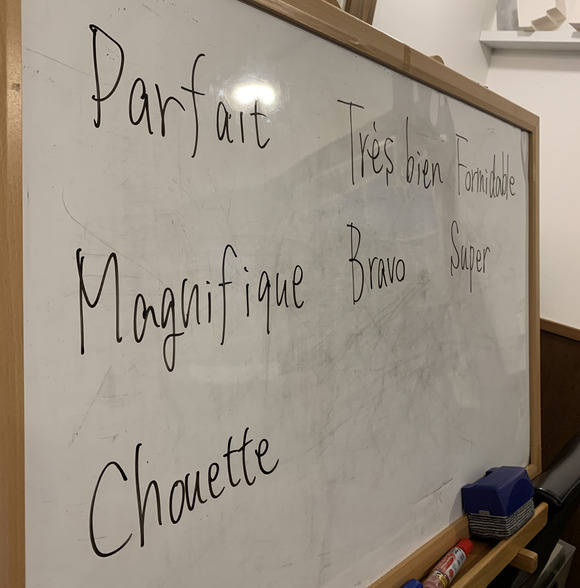 Parfait
Très bien Formidable
Magnifique Bravo Super
Chouette